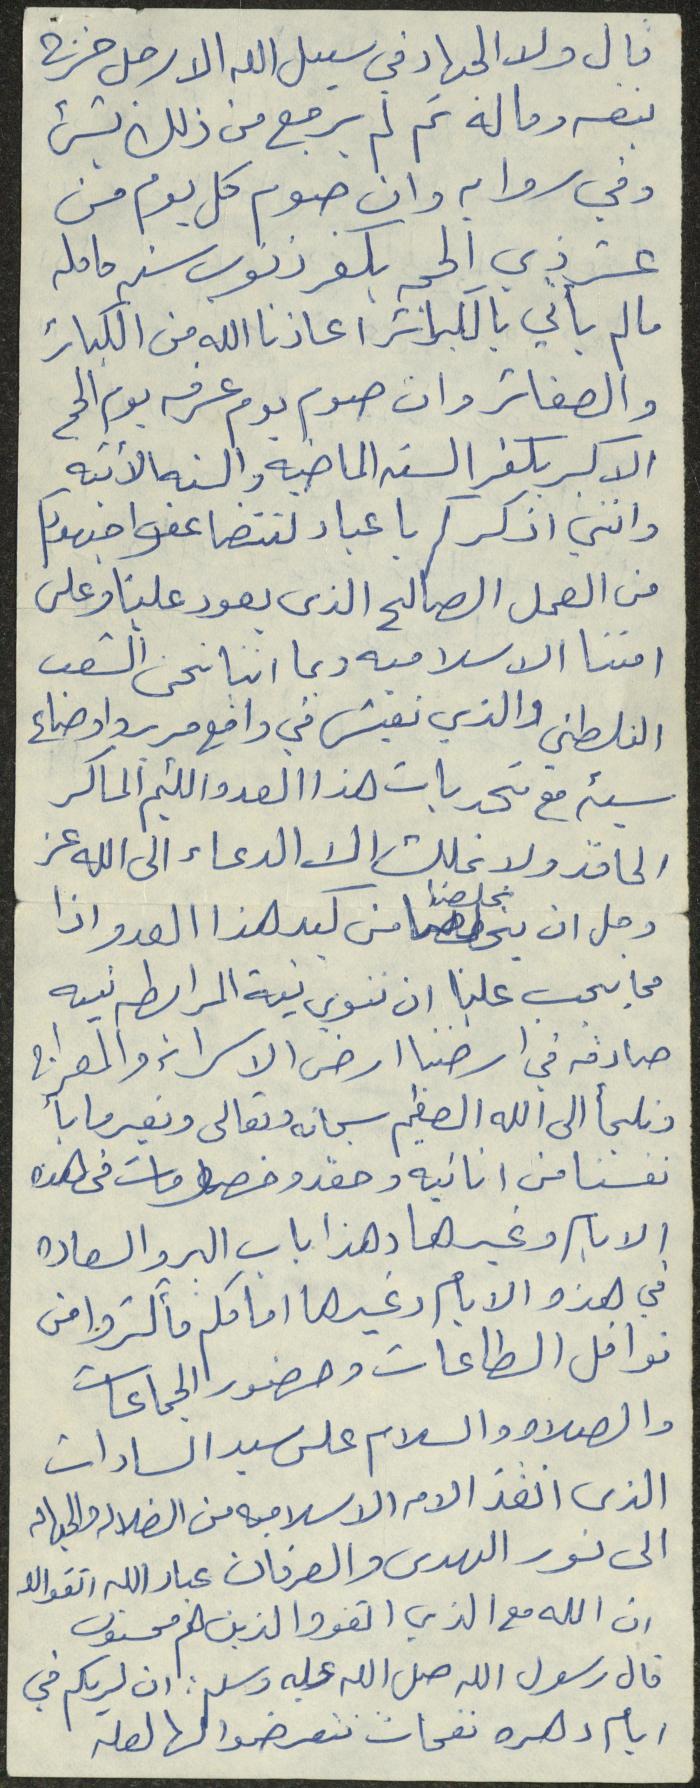 قال ولا الجهاد في سبيل الله الا رجل خرج
بنفسه وماله ثم لم يرجع من ذلك بشئ
وفي روايه وان صوم كل يوم من
عشر ذي الحجه يكفر ذنوب سنه كامله
مالم يأتي بالكبائر اعاذنا الله من الكبائر
والصغائر وان صوم يوم عرفه يوم الحج
الاكبر يكفر السنه الماضيه والسنه الآتيه
وانني اذكركم يا عباد لنضاعف جهودكم
من العمل الصالح الذى يعود علينا وعلى
امتنا الاسلاميه وبما اننا نحن الشعب
الفلسطيني والذي نعيش في واقع مرير واوضاع
سيئه مع تحديات هذا العدو اللئيم الماكر
الحاقد ولا نملك الا الدعاء الى الله عز
وجل ان يخلصنا من كيد هذا العدو اذا
مما يجب علينا ان ننوي نية المرابط نيه
صادقه في ارضنا ارض الاسراء والمعراج
ونلجأ الى الله العظيم سبحانه وتعالى ونغير ما بأ
نفسنا من انانيه وحقد وخصومات في هذه
الايام وغيرها وهذا باب البر والسعاده
في هذه الايام وغيرها امامكم فأكثروا من
نوافل الطاعات وحضور الجماعات
والصلاه والسلام على سيد السادات
الذى انقذ الامه الاسلاميه من الضلاله والجهاله
الى نور الهدى والعرفان عباد الله اتقوا الله
ان الله مع الذي اتقو والذين هم محسنون
قال رسول الله صل الله عليه وسلم: ان لربكم في
ايام دهره نفحات فتعرضوا لها لعله